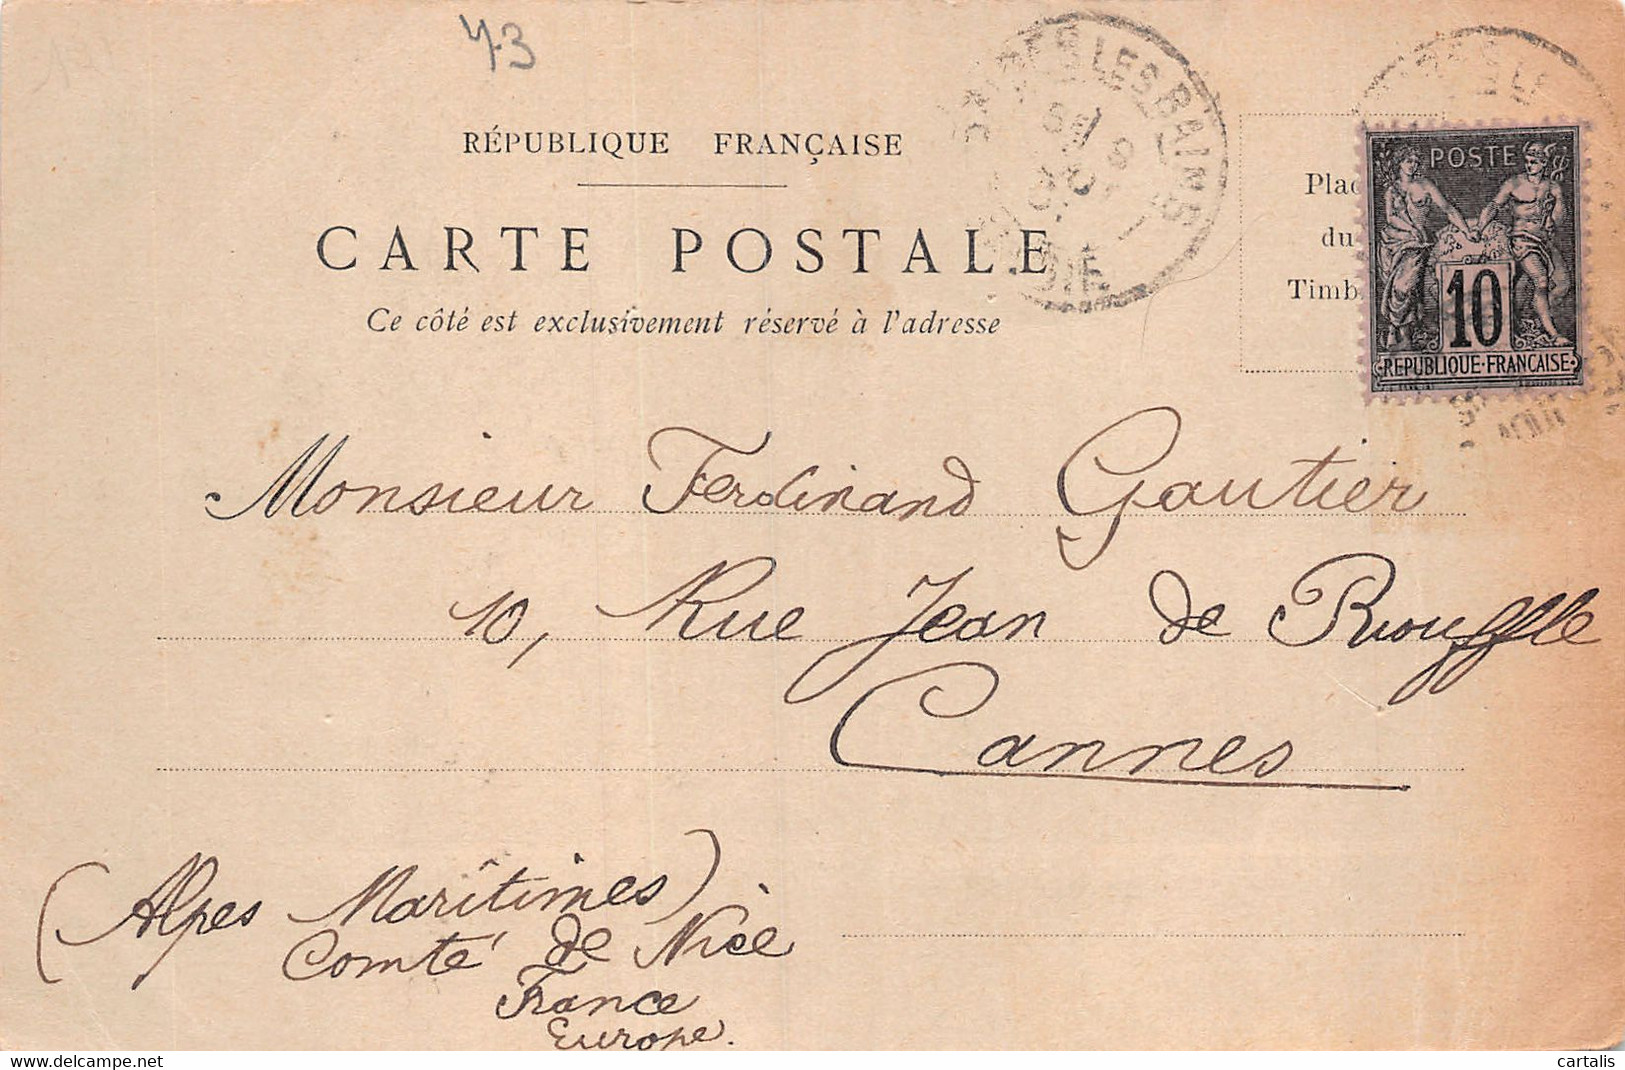 43
RÉPUBLIQUE FRANÇAISE
CARTE POSTALE
Ce côté est exclusivement réservé à l'adresse
LES BAINS
Plac
du
Timb
POSTE
10
REPUBLIQUE·FRANCAISE
AOUT
Monsieur Ferdinand Gautier
10, Rue Jean de Riouffle
Cannes
(Alpes Marîtimes)
Comté de Nice
France
Europe.
cartalis